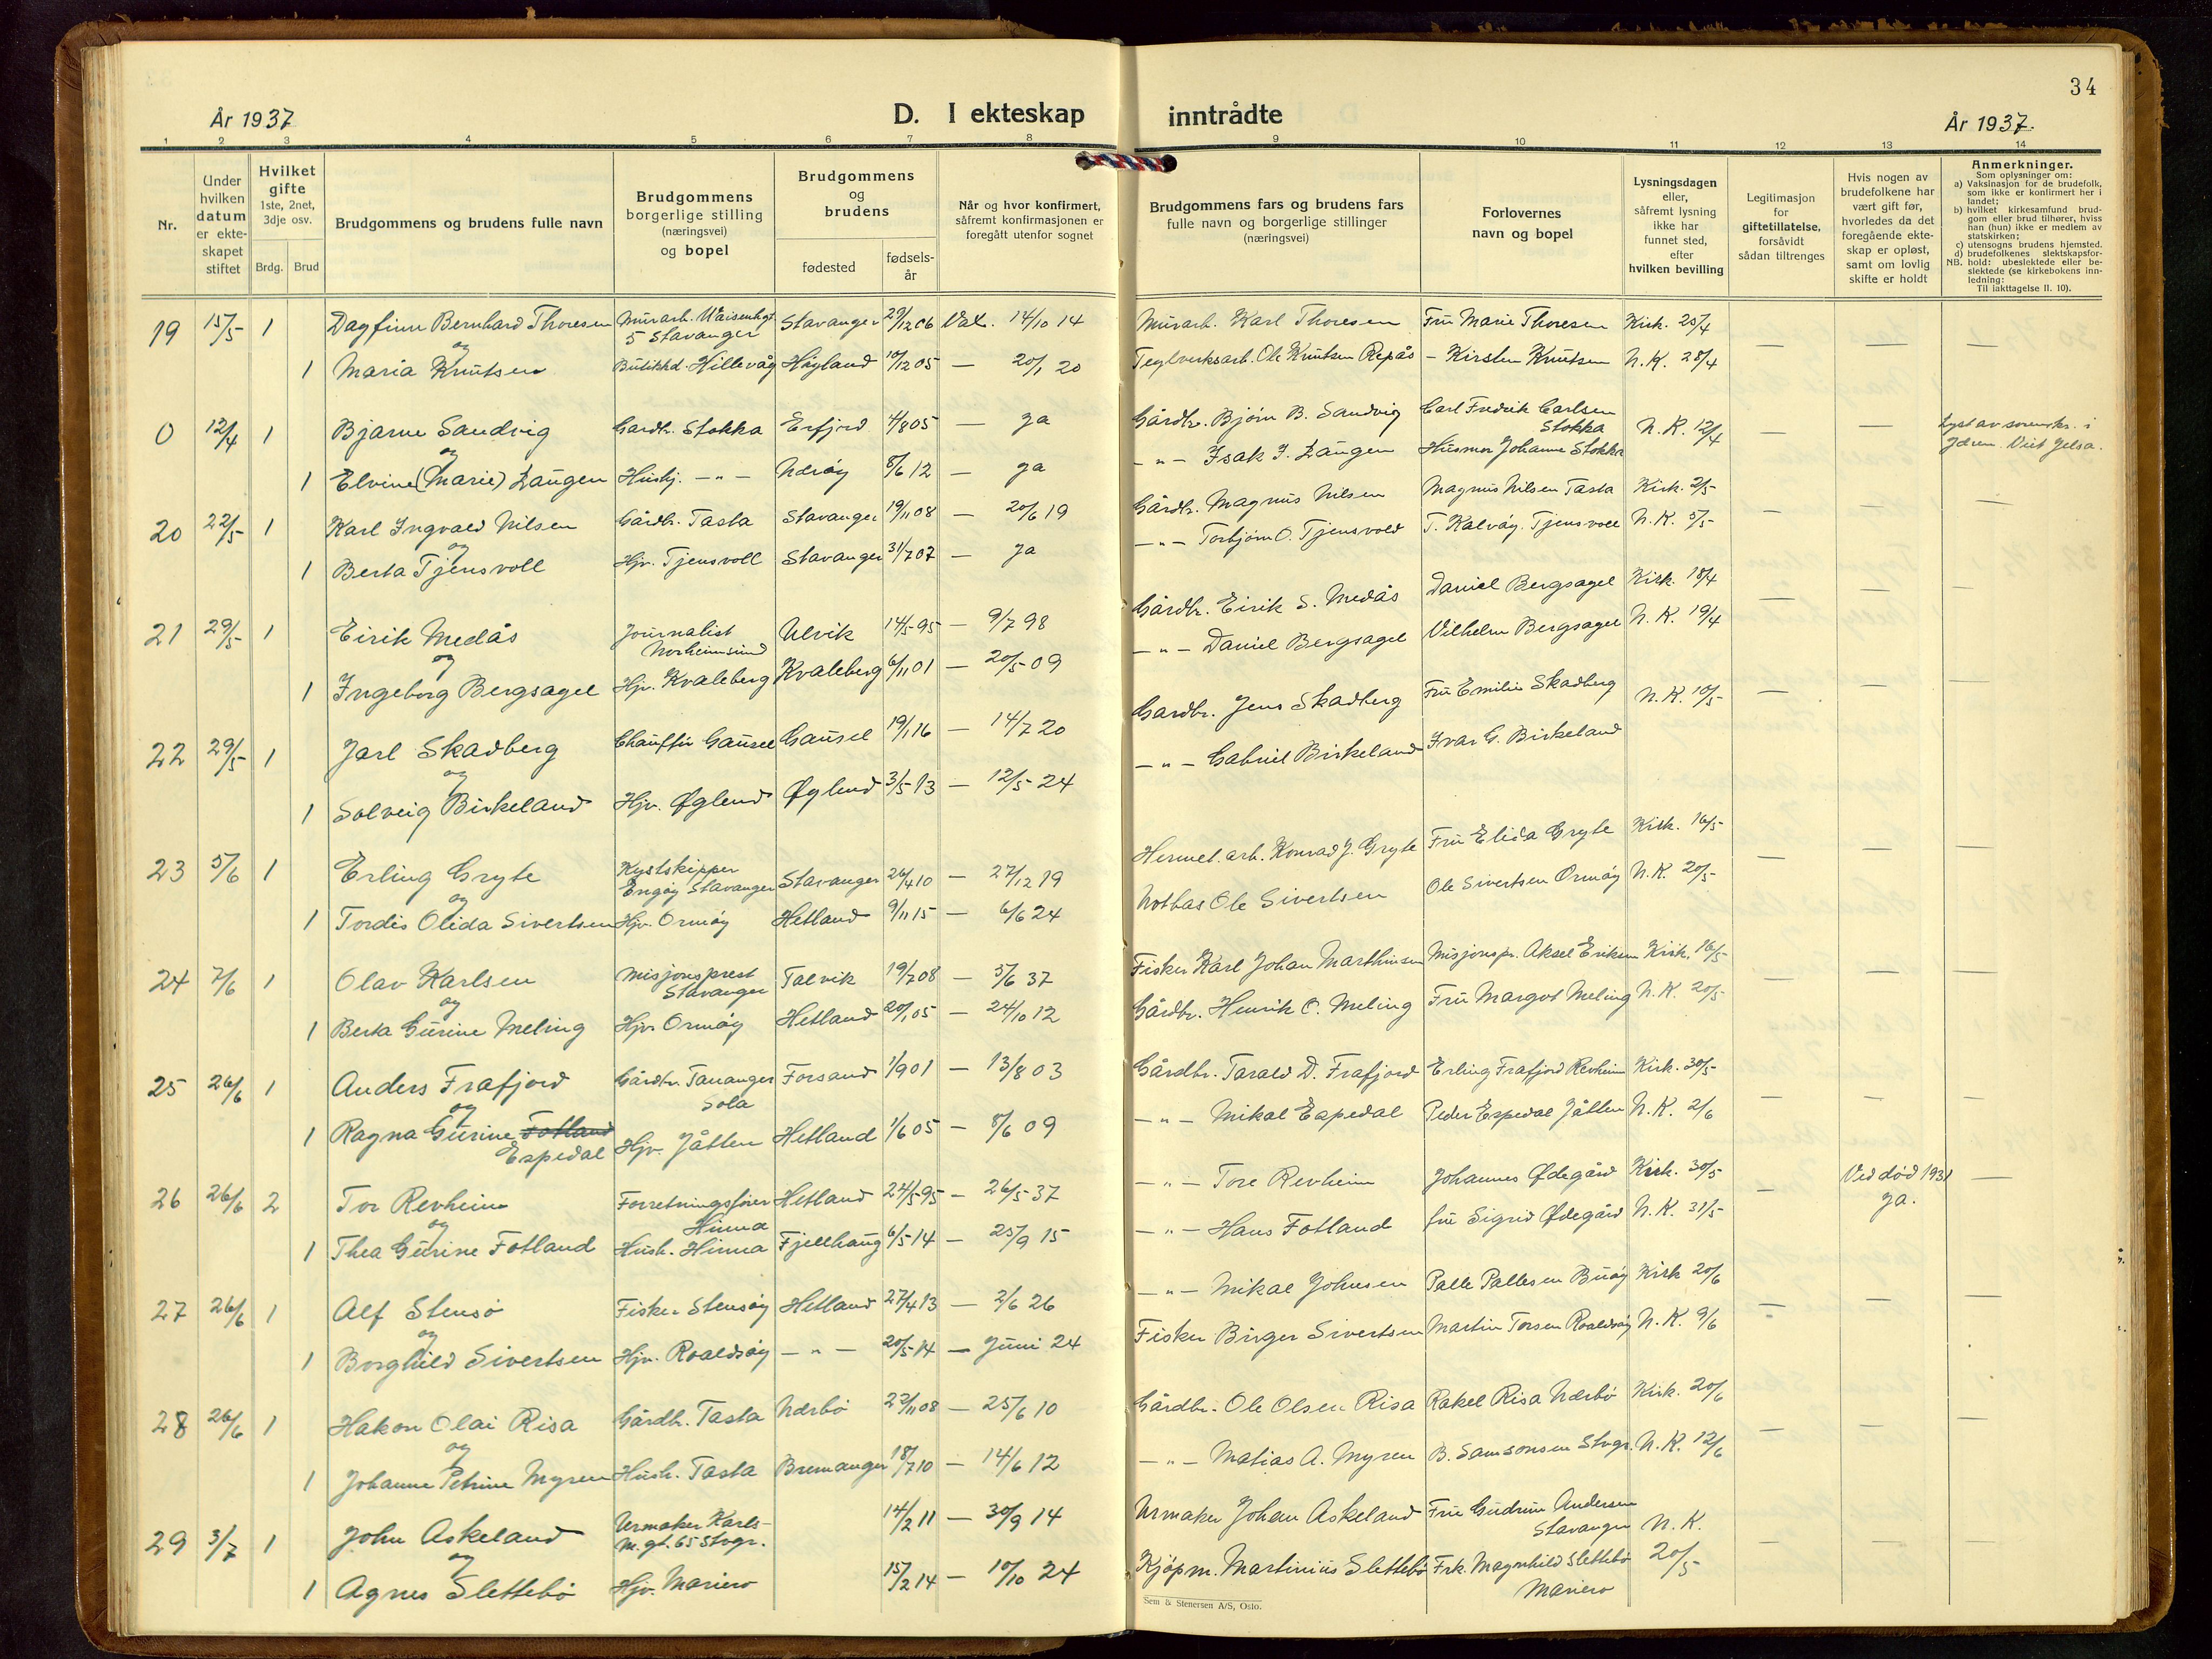 34
År 1937
D. I ekteskap inntrådte
År 1937.
1 2 3 4 5 6 7 8 9 10 11 12 13 14
Nr.
Under hvilken datum er ekteskapet stiftet
Hvilket gifte 1ste, 2net, 3dje osv.
Brdg. Brud
Brudgommens og brudens fulle navn
Brudgommens borgerlige stilling (næringsvei) og bopel
Brudgommens og brudens
fødested
fødselsår
Når og hvor konfirmert, såfremt konfirmasjonen er foregått utenfor sognet
Brudgommens fars og brudens fars fulle navn og borgerlige stillinger (næringsvei)
Forlovernes navn og bopel
Lysningsdagen eller, såfremt lysning ikke har funnet sted, efter hvilken bevilling
Legitimasjon for giftetillatelse, forsåvidt sådan tiltrenges
Hvis nogen av brudefolkene har vært gift før, hvorledes da det foregående ekteskap er opløst, samt om lovlig skifte er holdt
Anmerkninger.
Som oplysninger om:
a) Vaksinasjon for de brudefolk, som ikke er konfirmert her i landet;
b) hvilket kirkesamfund brudgom eller brud tilhører, hviss han (hun) ikke er medlem av statskirken;
c) utensogns brudens hjemsted.
d) brudefolkenes slektskapsforhold: ubeslektede eller beslektede (se kirkebokens innledning:
NB.
Til iakttagelse II. 10).
19 15/5 1 Dagfinn Bernhard Thoresen Murarb. Waisenhgt. 5 Stavanger Stavanger 29/12 06 Vax. 14/10 14 Murarb. Karl Thoresen Fru Marie Thoresen Kirk. 25/4 — — —
og
1 Maria Knutsen Butikkd. Hillevåg Høyland 10/12 05 — 20/1 20 Teglverksarb. Ole Knutsen Repås – Kirsten Knutsen N. K. 28/4
0 12/4 1 Bjarne Sandvig Gardbr. Stokka Erfjord 4/8 05 — ja Gårdbr. Bjørn B. Sandvig Carl Fredrik Carlsen Stokka N. K. 12/4 — Lyst av sorenskr. i Jæren. Viet Jelsa.
og
1 Elvine (Marie) Laugen Hushj. — " — 8/6 12 — ja — " — Isak I. Laugen Husmor Johanne Stokka
20 22/5 1 Karl Ingvald Nilsen Gårdbr. Tasta Stavanger 19/11 08 — 20/6 19 Gårdbr. Magnus Nilsen Magnus Nilsen Tasta Kirk. 2/5 — — —
og
1 Berta Tjensvoll Hjv. Tjensvoll Stavanger 31/7 07 — ja — " — Torbjørn O. Tjensvold T. Kalvåg. Tjensvoll N. K. 5/5
21 29/5 1 Eirik Medås Journalist Norheimsund Ulvik 14/5 95 — 9/7 98 Gårdbr. Eirik S. Medås Daniel Bergsagel Kirk. 18/4 — — —
og
1 Ingeborg Bergsagel Hjv. Kvaleberg Kvaleberg 6/11 01 — 20/5 09 — " — Daniel Bergsagel Vilhelm Bergsagel N. K. 19/4
22 29/5 1 Jarl Skadberg Chauffør Gausel Gausel 19/1 16 — 14/7 20 Gardbr. Jens Skadberg Fru Emilie Skadberg N. K. 10/5 — — —
og
1 Solveig Birkeland Hjv. Øglend Øglend 3/5 13 — 12/5 24 — " — Gabriel Birkeland Ivar G. Birkeland
23 5/6 1 Erling Gryte Kystskipper Engøy Stavanger Stavanger 26/4 10 — 27/12 19 Hermet. arb. Konrad J. Gryte Fru Elida Gryte Kirk. 16/5 — — —
og
1 Tordis Olida Sivertsen Hjv. Ormøy Hetland 9/11 15 — 6/6 24 Notbas Ole Sivertsen Ole Sivertsen Ormøy N. K. 20/5
24 7/6 1 Olav Karlsen Misjonsprest Stavanger Talvik 19/7 08 — 5/6 37 Fisker Karl Johan Marthinsen Misjonspr. Aksel Eriksen Kirk. 16/5 — — —
og
1 Berta Gurine Meling Hjv. Ormøy Hetland 20/1 05 — 24/10 12 Gårdbr. Henrik C. Meling Fru Margot Meling N. K. 20/5
25 26/6 1 Anders Frafjord Gårdbr. Tananger Sola Forsand 1/9 01 — 13/8 03 Gårdbr. Tarald D. Frafjord Erling Frafjord Revheim Kirk. 30/5 — — —
og
1 Ragna Gurine Fotland Espedal Hjv. Jåtten Hetland 1/6 05 — 8/6 09 — " — Mikal Espedal Peder Espedal Jåtten N. K. 2/6
26 26/6 2 Tor Revheim Forretningsfører Hinna Hetland 24/5 95 — 26/5 37 — " — Tore Revheim Johannes Ødegård Kirk. 30/5 — Ved død 1931 ja. —
og
1 Thea Gurine Fotland Hush. Hinna Fjellhaug 6/5 14 — 25/9 15 — " — Hans Fotland fru Sigrid Ødegård N. K. 31/5
27 26/6 1 Alf Stensø Fisker Stensøy Hetland 27/4 13 — 2/6 26 — " — Mikal Johnsen Palle Pallesen Buøy Kirk 20/6 — — —
og
1 Borghild Sivertsen Hjv. Roaldsøy — " — 20/5 14 — Juni 24 Fisker Birger Sivertsen Martin Torsen Roaldsøy N. K. 9/6
28 26/6 1 Hakon Olai Risa Gårdbr. Tasta Nærbø 22/11 08 — 25/6 10 Gårdbr. Ole Olsen Risa Rakel Risa Nærbø Kirk. 20/6 — — —
og
1 Johanne Petrine Myren Hush. Tasta Bremanger 18/7 10 — 14/6 12 — " — Matias A. Myren B. Samsonsen Stvgr. N. K. 12/6
29 3/7 1 John Askeland Urmaker Karls- m. gt. 65 Stvgr. 14/2 11 — 30/9 14 Urmaker Johan Askeland Fru Gudrun Andersen Stavanger N. K. 20/5 — — —
og
1 Agnes Slettebø Hjv. Mariero 15/2 14 — 10/10 24 Kjøpm. Martinius Slettebø Frk. Magnhild Slettebø Mariero
Sem & Stenersen A/S, Oslo.